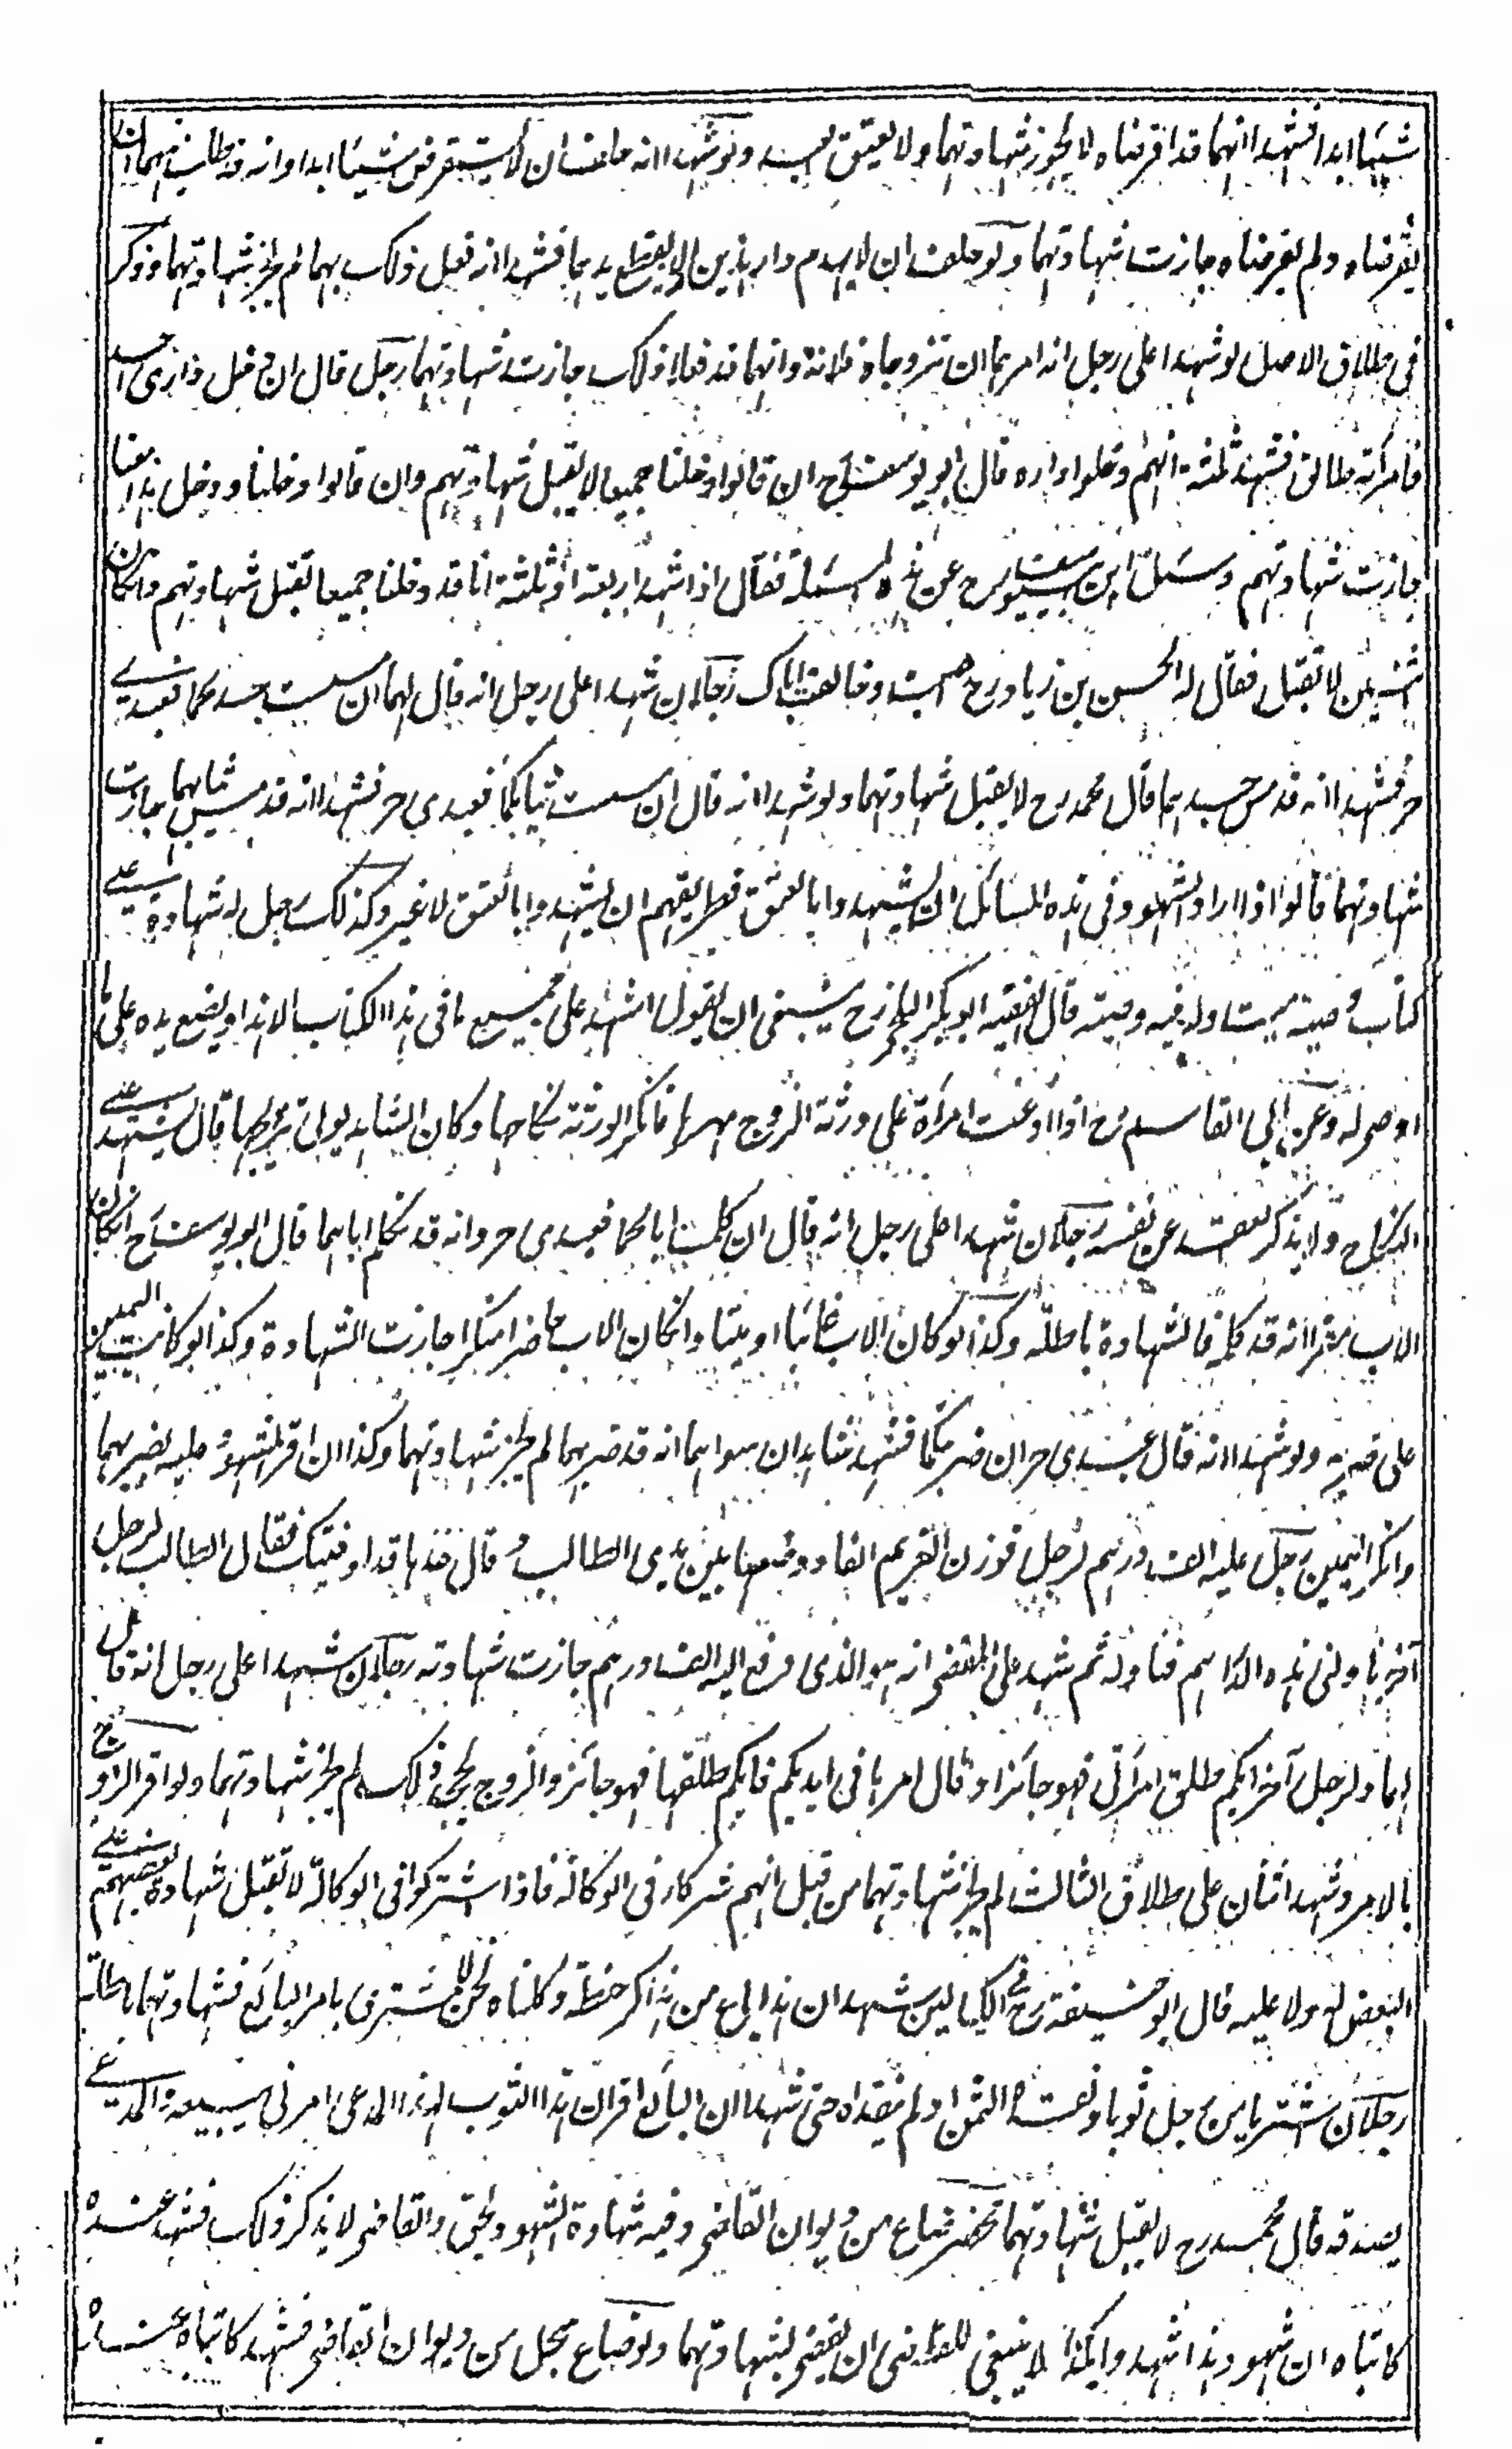 شيئا ابدا فشهدا انهما قد اقرضاه لا يجوز شهادتهما ولا يعتق عبده ولو شهدا انه حلف ان لا يستقرض شيئا ابدا وانه قد طلب منهما ان
يقرضاه ولم يقرضاه جازت شهادتهما ولو حلف ان لا يهدم دار هذين الا يقطع يديهما فشهدا انه فعل ذلك بهما لم يجز شهادتهما وذكر
فى طلاق الاصل لو شهدا على رجل انه امرهما ان تزوجاه فلانة وانهما قد فعلا ذلك جازت شهادتهما رجل قال ان دخل دارى احد
فامرأته طالق فشهد ثلثة انهم دخلوا داره قال ابو يوسف رح ان قالوا دخلنا جميعا لا يقبل شهادتهم وان قالوا دخلنا ودخل هذا معنا
جازت شهادتهم وسئل ابن يوسف رح عن هذه المسئلة فقال اذا شهد اربعة او ثلثة انا قد دخلنا جميعا تقبل شهادتهم وان كان
اثنين لا تقبل فقال له الحسن بن زياد رح اصبت وخالفت اباك رجلان شهدا على رجل انه قال لهما ان مسست جسدكما فعبدى
حر فشهدا انه قد مس جسدهما قال محمد رح لا يقبل شهادتهما ولو شهدا انه قال ان مسست ثيابكما فعبدى حر فشهدا انه قد مس ثيابهما جازت
شهادتهما قالوا اذا اراد الشهود فى هذه المسائل ان يشهدوا بالعتق فطريقهم ان يشهدوا بالعتق لا غير وكذلك رجل له شهادة على
كتاب وصية ميت وله فيه وصية قال الفقيه ابو بكر البلخى رح ينبغى ان يقول اشهد على جميع ما فى هذا الكتاب الا هذا ويضع يده على ما
اوصى له وعن ابى القاسم رح اذا ادعت امرأة على ورثة الزوج مهرها فانكر الورثة نكاحها وكان الشاهد تولى تزويجها قال يشهد على
النكاح ولا يذكر العقد عن نفسه رجلان شهدا على رجل انه قال ان كلمت اباكما فعبدى حر وانه قد كلم اباهما قال ابو يوسف رح ان كان
الاب مقرا انه قد كلمه فالشهادة باطلة وكذا لو كان الاب غائبا او ميتا وان كان الاب حاضرا منكرا جازت الشهادة وكذا لو كانت اليمين
على ضربه ولو شهدا انه قال عبدى حر ان ضربتكما فشهد شاهدان سواهما انه قد ضربهما لم يجز شهادتهما وكذا ان اقر المشهود عليه بضربهما
وانكر اليمين رجل عليه الف درهم لرجل فوزن الغريم الفا ووضعها بين يدى الطالب وقال خذها قد اوفيتك فقال الطالب لرجل
آخر ناولنى هذه الدراهم فناوله ثم شهد على المقتضى انه هو الذى دفع اليه الف درهم جازت شهادته رجلان شهدا على رجل انه قال
لهما ولرجل آخر ايكم طلق امرأتى فهو جائز او قال امرها فى ايديكم فايكم طلقها فهو جائز والزوج يجحد ذلك لم يجز شهادتهما ولو اقر الزوج
بالامر وشهد اثنان على طلاق الثالث لم يجز شهادتهما من قبل انهم شركاء فى الوكالة فاذا اشتركوا فى الوكالة لا تقبل شهادة بعضهم على
البعض له ولا عليه قال ابو حنيفة رح فى الكيالين شهدا ان هذا باع من هذا كر حنطة وكلناه نحن للمشترى بامر البائع فشهادتهما باطلة
رجلان اشتريا من رجل ثوبا ونقدا الثمن او لم ينقداه حتى شهدا ان البائع اقر ان هذا الثوب لهذا المدعى امرنى ببيعه والمدعى
يصدقه قال محمد رح لا يقبل شهادتهما محضر ضاع من ديوان القاضى وفيه شهادة الشهود بحق والقاضى لا يذكر ذلك فشهد عنده
كاتباه ان شهود هذا شهدوا بكذا لا ينبغى للقاضى ان يقضى بشهادتهما ولو ضاع سجل من ديوان القاضى فشهد كاتباه عنده